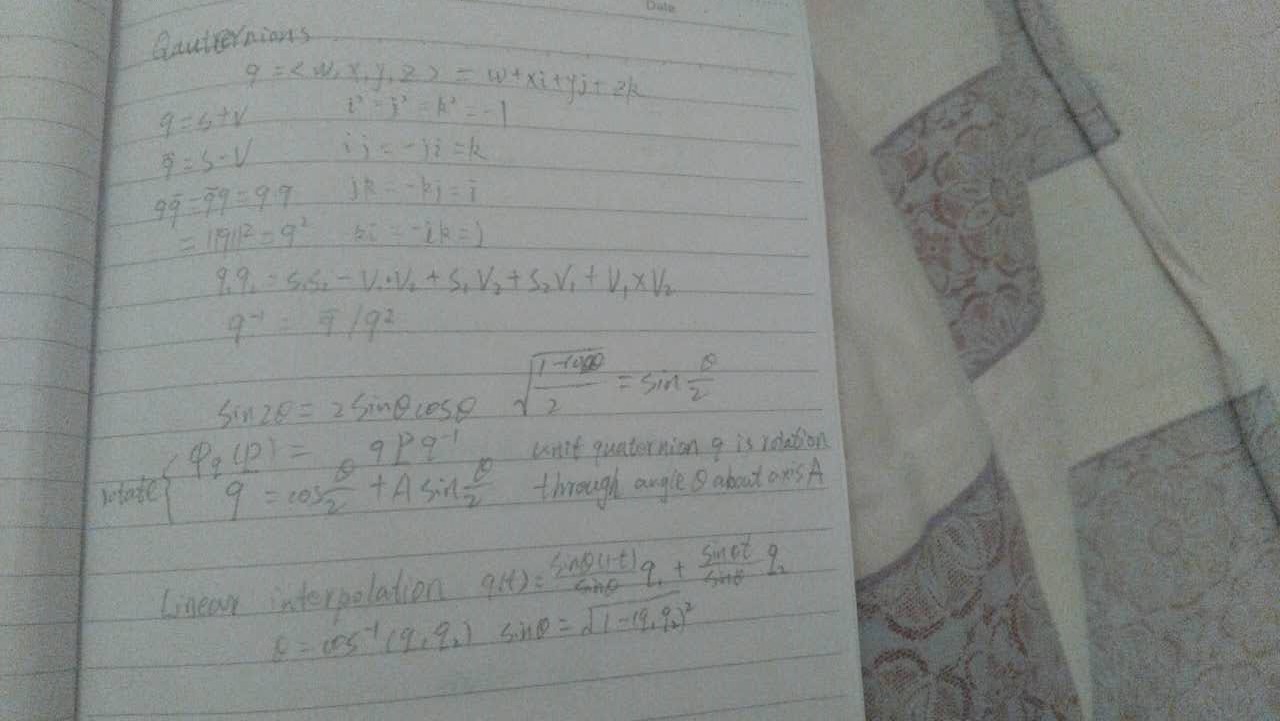 Date
Qauternions
q = <w, x, y, z> = w+xi+yj+zk
q = s+v i² = j² = k² = -1
q̄ = s-v ij = -ji = k
qq̄ = q̄q = q·q jk = -kj = i
= ||q||² = q² ki = -ik = j
q₁q₂ = s₁s₂ - V₁·V₂ + s₁V₂ + s₂V₁ + V₁×V₂
q⁻¹ = q̄ / q²
sin2θ = 2sinθcosθ √((1-cosθ)/2) = sin θ/2
rotate { φq(p) = qPq⁻¹ unit quaternion q is rotation
q = cos θ/2 + A sin θ/2 through angle θ about axis A
Linear interpolation q(t) = sinθ(1-t)/sinθ q₁ + sinθt/sinθ q₂
θ = cos⁻¹(q₁q₂) sinθ = √(1-(q₁q₂)²)